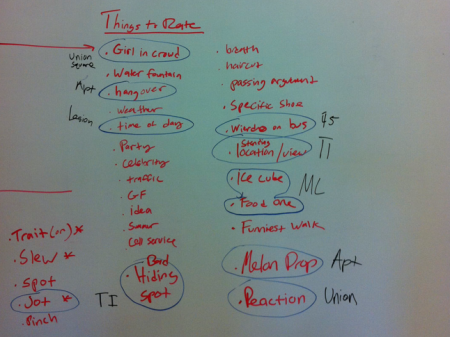 Things to Rate
Union Square
• Girl in crowd
• Water fountain
Apt
• hangover
• weather
• time of day
• Party
• celebrity
• traffic
• GF
• idea
• Cell service
• Bad Hiding spot
• breath
• haircut
• passing argument
• Specific Shoe
• Weirdo on bus
• Starting location/view
TI
• Ice cube
ML
• Food one
• Funniest Walk
• Melon Drop
Apt
• Reaction
Union
• Trait (or) *
• Slew *
• spot
• Jot *
TI
• Pinch